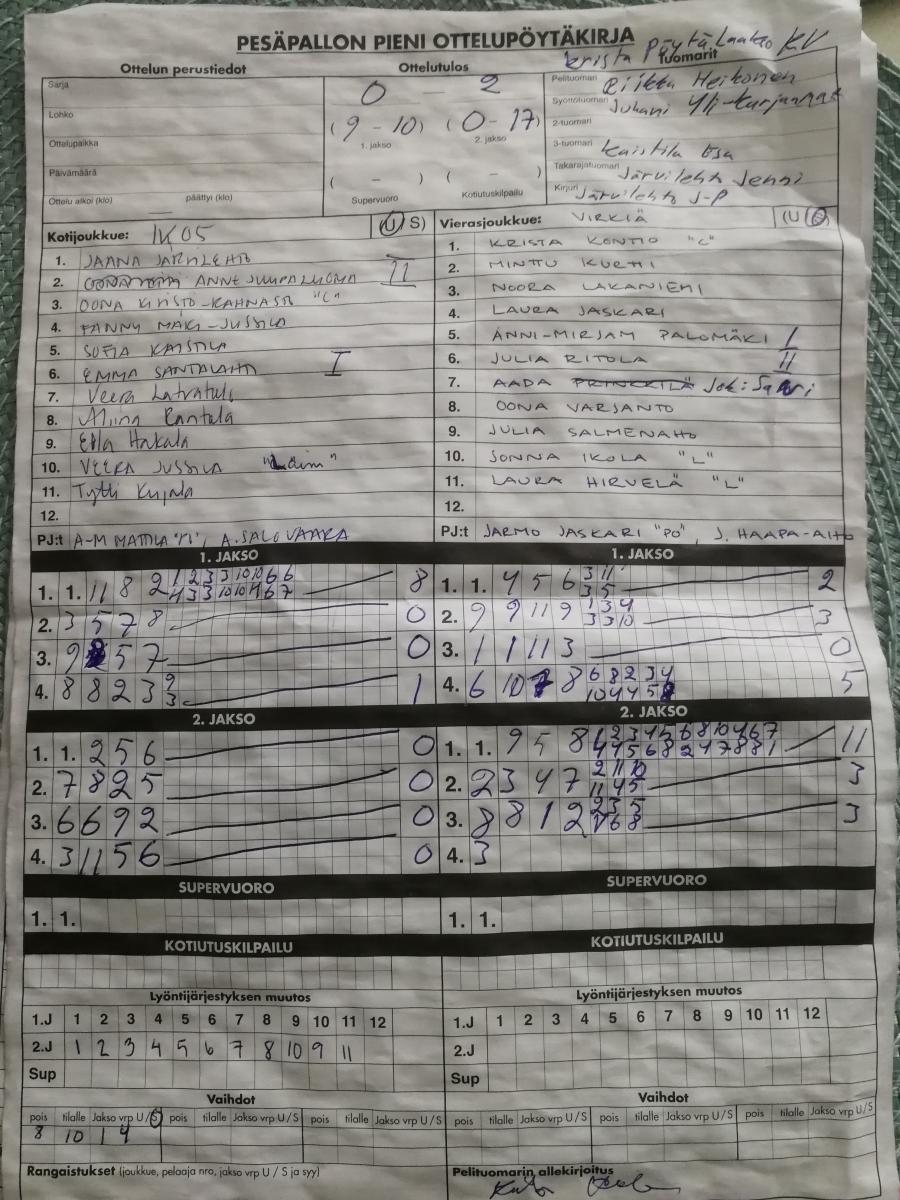 PESÄPALLON PIENI OTTELUPÖYTÄKIRJA
Krista Pöytä-Laakso KV
Ottelun perustiedot
Ottelutulos
Tuomarit
Sarja
0 - 2
Pelituomari Riikka Heikonen
Syöttötuomari Juhani Yli-Kurjannat
Lohko
(9 - 10) (0 - 17)
1. jakso 2. jakso
2-tuomari
Ottelupaikka
3-tuomari Kaistila Esa
Päivämäärä
( - ) ( - )
Takarajatuomari Järvilehto Jenni
Ottelu alkoi (klo) päättyi (klo)
Supervuoro Kotiutuskilpailu
Kirjuri Järvilehto J-P
Kotijoukkue: IK05 (U/S)
Vierasjoukkue: VIRKIÄ (U/S)
1. JAANA JÄRVILEHTO
2. ANNE JUUPALUOMA II
3. OONA KIVISTÖ-KAHNASTO "C"
4. FANNY MÄKI-JUSSILA
5. SOFIA KAISTILA
6. EMMA SANTALAHTI I
7. Veera Latvatalo
8. Aliina Rantala
9. Ella Hakala
10. VEERA JUSSILA
11. Tytti Kujala
12.
PJ:t A-M MATTILA "PJ", A. SALOVAARA
1. KRISTA KONTIO "C"
2. MINTTU KURHI
3. NOORA LAKANIEMI
4. LAURA JASKARI
5. ANNI-MIRJAM PALOMÄKI I
6. JULIA RITOLA II
7. AADA PRINKKILÄ Jokisaari
8. OONA VARSANTO
9. JULIA SALMENAHO
10. SONNA IKOLA "L"
11. LAURA HIRVELÄ "L"
12.
PJ:t JARMO JASKARI "PO", J. HAAPA-AHO
1. JAKSO
1. 1. 11 8 2 1 2 3 3 10 10 6 6 8
4 3 3 10 10 4 6 7
2. 3 5 7 8 0
3. 9 5 7 0
4. 8 8 2 3 9 1
3
1. JAKSO
1. 1. 4 5 6 3 11 2
3 5
2. 9 9 11 9 1 3 4 3
3 3 10
3. 1 1 11 3 0
4. 6 10 7 8 6 8 2 3 4 5
10 4 4 5
2. JAKSO
1. 1. 2 5 6 0
2. 7 8 2 5 0
3. 6 6 9 2 0
4. 3 11 5 6 0
2. JAKSO
1. 1. 9 5 8 1 2 3 4 5 6 8 10 4 6 7 11
4 4 5 6 8 2 4 7 8 8 1
2. 2 3 4 7 2 11 10 3
11 4 5
3. 8 8 1 2 2 3 5 3
6 8
4. 3
SUPERVUORO
1. 1.
SUPERVUORO
1. 1.
KOTIUTUSKILPAILU
KOTIUTUSKILPAILU
Lyöntijärjestyksen muutos
1.J 1 2 3 4 5 6 7 8 9 10 11 12
2.J 1 2 3 4 5 6 7 8 10 9 11
Sup
Lyöntijärjestyksen muutos
1.J 1 2 3 4 5 6 7 8 9 10 11 12
2.J
Sup
Vaihdot
pois tilalle Jakso vrp U/S pois tilalle Jakso vrp U/S pois tilalle Jakso vrp U/S
8 10 1 4
Vaihdot
pois tilalle Jakso vrp U/S pois tilalle Jakso vrp U/S pois tilalle Jakso vrp U/S
Rangaistukset (joukkue, pelaaja nro, jakso vrp U / S ja syy)
Pelituomarin allekirjoitus